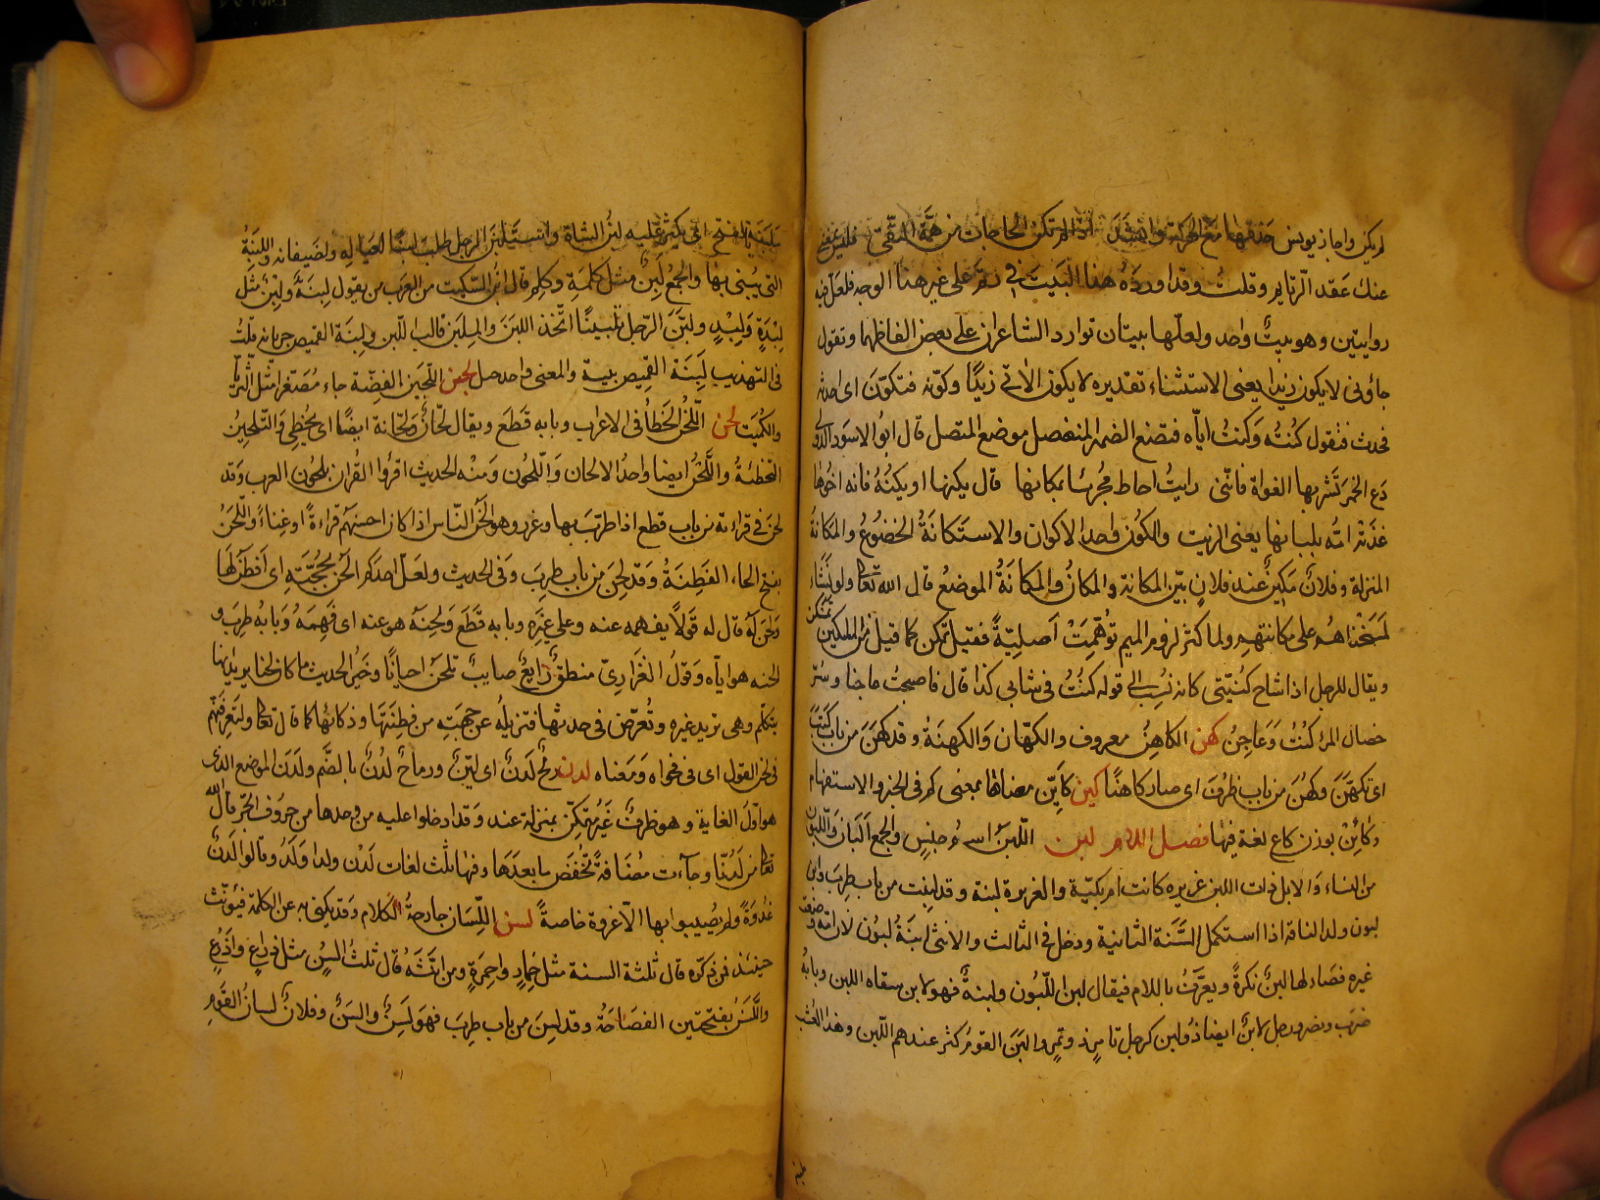 لم يكن واجاز يونس حذفها مع الحركة وانشد اذا لم تكن الحاجات من همة الفتى فليس بمغن
عنك عقد الرتايم وقلت وقد اورده هذا البيت في رتم على غير هذا الوجه فلعل فيه
روايتين وهو بيت واحد ولعلها بيتان توارد الشاعران على بعض الفاظهما وتقول
جاؤنى لا يكون زيدا يعنى الاستثناء تقديره لا يكون الآتى زيدا وكونه فتكون اى احدثه
فحدث فتقول كنته وكنت اياه فتضع الضمير المنفصل موضع المتصل قال ابو الاسود الدؤلى
دع الخمر تشربها الغواة فاننى رايت اخاها مجزئا بمكانها فان لا يكنها او يكنه فانه اخوها
غذته امه بلبانها يعنى الزبيب والكون واحد الاكوان والاستكانة الخضوع والمكانة
المنزلة وفلان مكين عند فلان بين المكانة والمكان والمكانة الموضع قال الله تعالى ولو نشاء
لمسخناهم على مكانتهم ولما كثر لزوم الميم توهمت اصلية فقيل تمكن كما قيل من المسكين تمسكن
ويقال للرجل اذا شاخ كنتى كانه نسب الى قوله كنت فى شبابى كذا قال فاصبحت كنتيا واصبحت عاجنا وشر
خصال المرء كنت وعاجن كهن الكاهن معروف والكهان والكهنة وقد كهن من باب كتب
اى تكهن وكهن من باب ظرف اى صار كاهنا كين كاين معناها بمعنى كم فى الخبر والاستفهام
وكائن بوزن كاع لغة فيها فصل اللام لبن اللبن اسم جنس والجمع البان واللبون
من الشاء والابل ذات اللبن غزيره كانت ام بكيئة والغزيرة لبنة وقد لبنت من باب طرب وابن
لبون ولد الناقة اذا استكمل السنة الثانية ودخل فى الثالث والانثى ابنة لبون لان امه وضعت
غيره فصار لها لبن نكرة ويعرف باللام فيقال ابن اللبون ولبنه فهو لابن سقاه اللبن وبابه
ضرب ونصر ورجل لابن ايضا ذو لبن كرجل تامر ذو تمر والبن القوم كثر عندهم اللبن وهذا العشب
ملبنة بالفتح اى يكثر عليه لبن الشاة واستلبن الرجل طلب لبنا لعياله ولضيفانه واللبنة
التى يبنى بها والجمع لبن مثل كلمة وكلم قال ابن السكيت من العرب من يقول لبنة ولبن مثل
لبدة ولبد ولبن الرجل تلبينا اتخذ اللبن والملبن قالب اللبن ولبنة القميص جربانه قلت
فى التهذيب لبنة القميص بنيقته والمعنى واحد لجن اللجين الفضة جاء مصغرا مثل الثريا
والكميت لحن اللحن الخطأ فى الاعراب وبابه قطع ويقال لحان ولحانة ايضا اى يخطى والتلحين
التخطئة واللحن ايضا واحد الالحان واللحون ومنه الحديث اقرؤا القران بلحون العرب وقد
لحن فى قراءته من باب قطع اذا طرب بها وغرد وهو الحن الناس اذا كان احسنهم قراءة او غناء واللحن
بفتح الحاء الفطنة وقد لحن من باب طرب وفى الحديث ولعل احدكم الحن بحجته اى افطن لها
ولحن له قال له قولا يفهمه عنه وعلى غيره وبابه قطع ولحنه هو عنه اى فهمه وبابه طرب و
الحنه هو اياه وقول الفزارى منطق رايع صايب وتلحن احيانا وخير الحديث ما كان لحنا يريد انها
تتكلم وهى تريد غيره وتعرض فى حديثها فتزيله عن جهته من فطنتها وذكائها كما قال تعالى ولتعرفنهم
فى لحن القول اى فى فحواه ومعناه لدن رمح لدن اى لين ورماح لدن بالضم ولدن الموضع الذى
هو اول الغاية وهو ظرف غير متمكن بمنزلة عند وقد ادخلوا عليه من وحدها من حروف الجر قال الله
تعالى من لدنا وجاءت مضافة تخفض ما بعدها وفيها ثلث لغات لدن ولدا ولد وقالوا لدن
غدوة ولم يصيبوا بها الا غدوة خاصة لسن اللسان جارحة الكلام وقد يكنى به عن الكلمة فيؤنث
حينئذ فمن ذكره قال ثلثة السنة مثل حمار واحمرة ومن انثه قال ثلث السن مثل ذراع واذرع
واللسن بفتحتين الفصاحة وقد لسن من باب طرب فهو لسن والسن وفلان لسان القوم